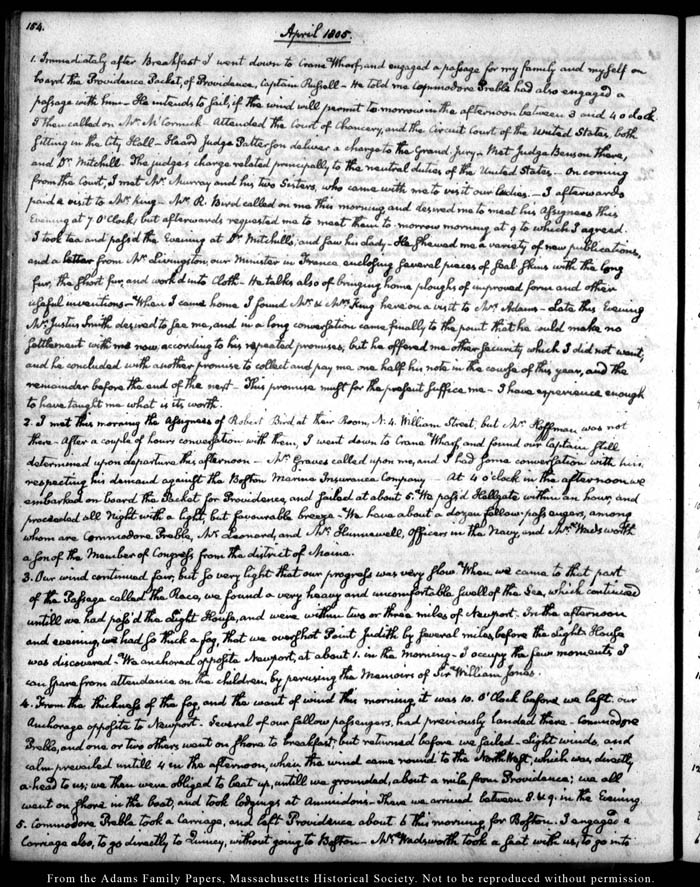 154.
April 1805.
1. Immediately after Breakfast I went down to Crane Wharf, and engaged a passage for my family and myself on
board the Providence Packet, of Providence, Captain Russell — He told me Commodore Preble had also engaged a
passage with him — He intends to sail, if the wind will permit to morrow in the afternoon between 3 and 4 o clock
I then called on Mr. McCormick. Attended the Court of Chancery, and the Circuit Court of the United States, both
sitting in the City Hall — Heard Judge Patterson deliver a charge to the Grand Jury — Met Judge Benson there,
and Dr. Mitchill. The judge's charge related principally, to the neutral duties of the United States — On coming
from the Court, I met Mr. Murray and his two Sisters, who came with me to visit our Ladies. — I afterwards
paid a visit to Mr. King — Mr. R. Bird called on me this morning and desired me to meet his Assignees this
Evening at 7 O'Clock; but afterwards requested me to meet them to-morrow morning at 9 to which I agreed.
I took tea and pass'd the Evening at Dr. Mitchill's; and saw his Lady — He shewed me a variety of new publications,
and a letter from Mr. Livingston, our Minister in France enclosing several pieces of Seal Skins with the long
fur, the short fur, and work'd into Cloth — He talks also of bringing home ploughs of improved form and other
useful inventions — When I came home I found Mr. & Mrs. King here on a visit to Mrs. Adams — Late this Evening
Mr. Justus Smith desired to see me, and in a long conversation came finally to the point that he could make no
Settlement with me now according to his repeated promises; but he offered me other Security which I did not want;
and he concluded with another promise to collect and pay me one half his note in the course of this year, and the
remainder before the end of the next — This promise must for the present suffice me — I have experience enough
to have taught me what is its worth.
2. I met this morning the assignees of Robert Bird at their Room, N. 4. William Street; but Mr. Hoffman was not
there — After a couple of hours conversation with them, I went down to Crane Wharf, and found our Captain still
determined upon departure this afternoon — Mr. Graves called upon me, and I had some conversation with him,
respecting his demand against the Boston Marine Insurance Company — At 4 o'clock in the afternoon we
embarked on board the Packet for Providence, and sailed at about 5. We pass'd Hellgate within an hour, and
proceeded all Night with a light, but favourable breeze — We have about a dozen fellow-passengers, among
whom are Commodore Preble, Mr. Leonard, and Mr. Hunnewell, officers in the Navy, and Mr. Wadsworth
a son of the Member of Congress from the district of Maine.
3. Our wind continued fair, but so very light that our progress was very slow. When we came to that part
of the Passage called the Race, we found a very heavy and uncomfortable swell of the Sea, which continued
untill we had pass'd the Light House, and were within two or three miles of Newport. In the afternoon
and evening, we had so thick a fog, that we overshot Point Judith by several miles, before the Light-House
was discovered — We anchored opposite Newport, at about 1. in the morning — I occupy the few moments, I
can spare from attendance on the children, by perusing the Memoirs of Sir William Jones.
4. From the thickness of the fog, and the want of wind this morning, it was 10. O'Clock before we left our
Anchorage opposite to Newport. Several of our fellow passengers, had previously landed there — Commodore
Preble, and one or two others, went on shore to breakfast; but returned before we sailed — Light winds, and
calm prevailed untill 4 in the afternoon, when the wind came round to the North West, which was directly
a-head to us; we then were obliged to beat up, untill we grounded, about a mile from Providence; we all
went on shore in the boat, and took lodgings at Ammidons — There we arrived between 8. & 9. in the Evening.
5. Commodore Preble took a Carriage, and left Providence about 6 this morning for Boston. I engaged a
Carriage also, to go directly to Quincy, without going to Boston — Mr. Wadsworth took a seat with us, to go into
From the Adams Family Papers, Massachusetts Historical Society. Not to be reproduced without permission.